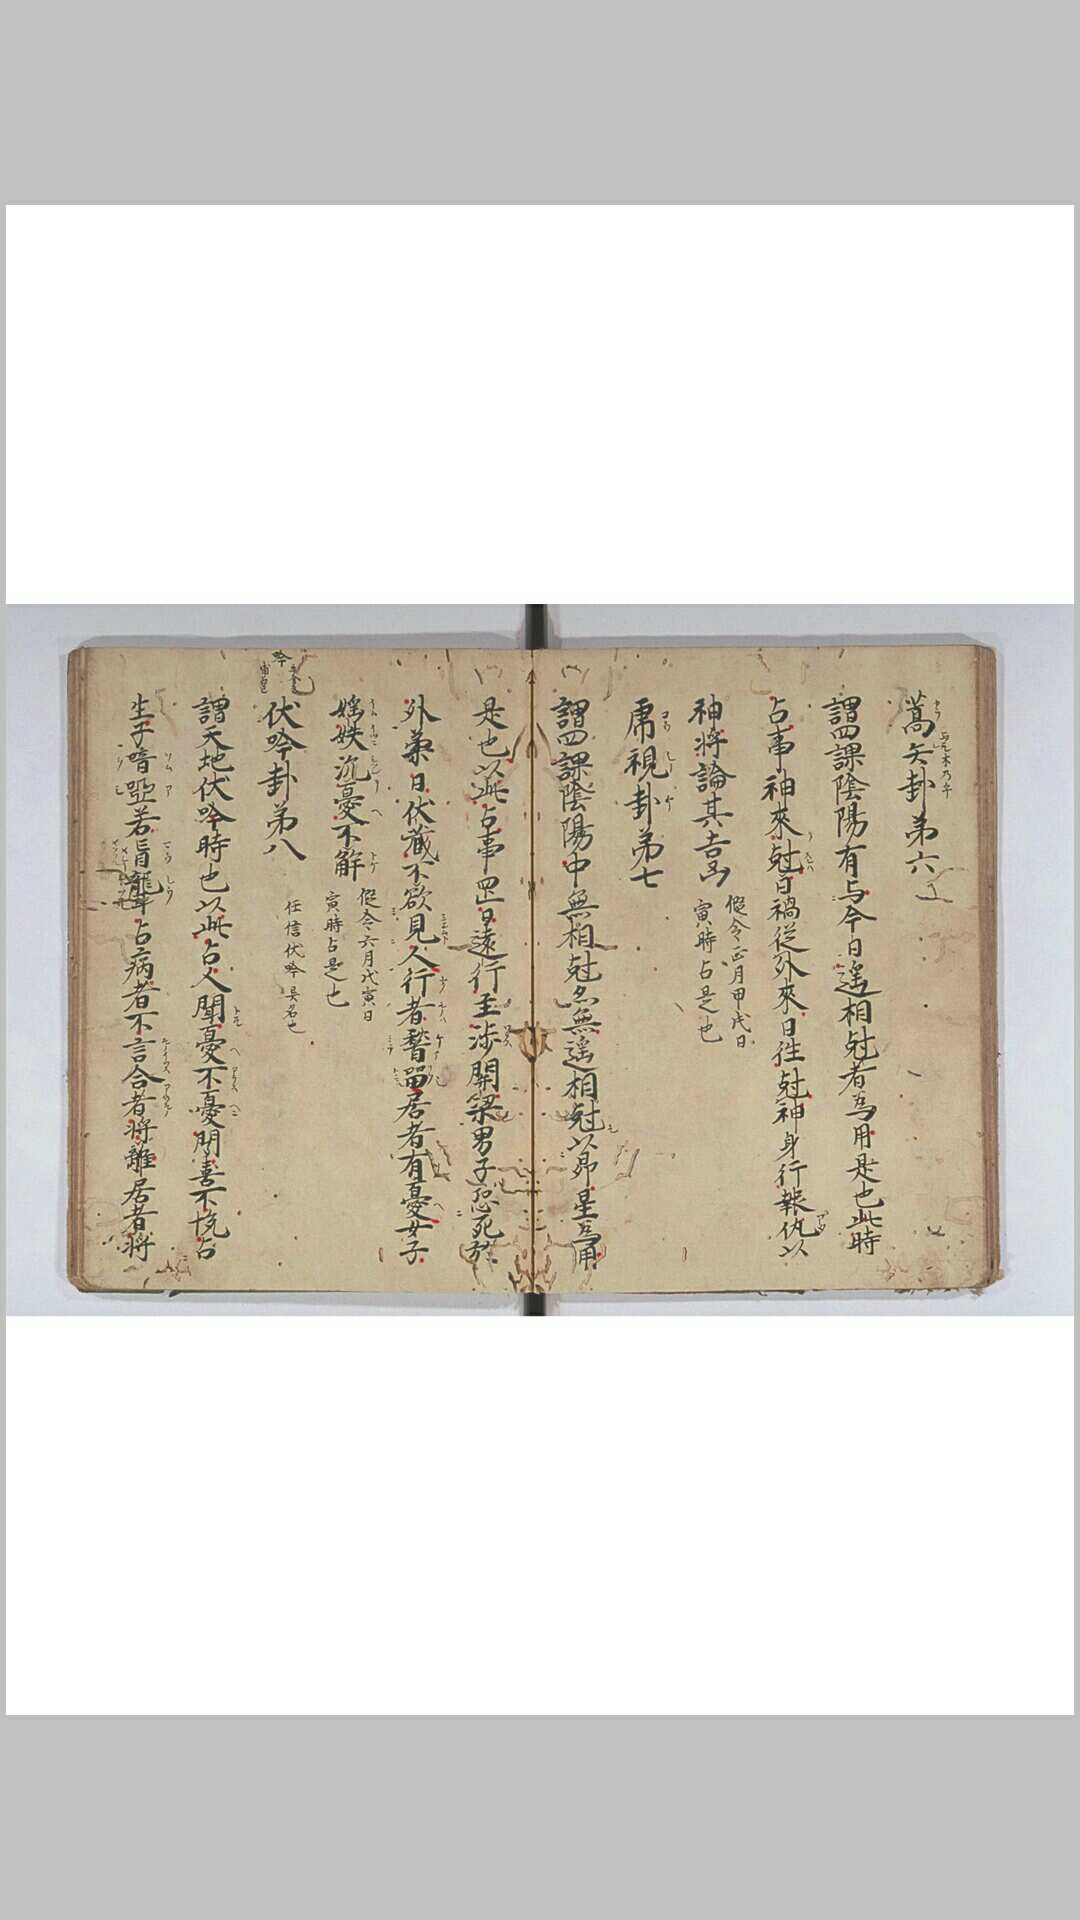 蒿矢卦第六
謂四課陰陽有与今日遥相尅者為用是也此時
占事神來尅日禍從外來日徃尅神身行報仇以
神將論其吉凶
假令正月甲戌日
寅時占是也
虎視卦第七
謂四課陰陽中無相尅亦無遥相尅以昴星為用
是也以此占事罡日遠行至渉関梁男子恐死於
外柔日伏蔵不欲見人行者稽留居者有憂女子
婬妷沉憂不解
假令六月戊寅日
寅時占是也
伏吟卦第八
任信伏吟異名也
謂天地伏吟時也以此占人聞憂不憂聞喜不悦占
生子喑啞若盲聾占病者不言合者將離居者將